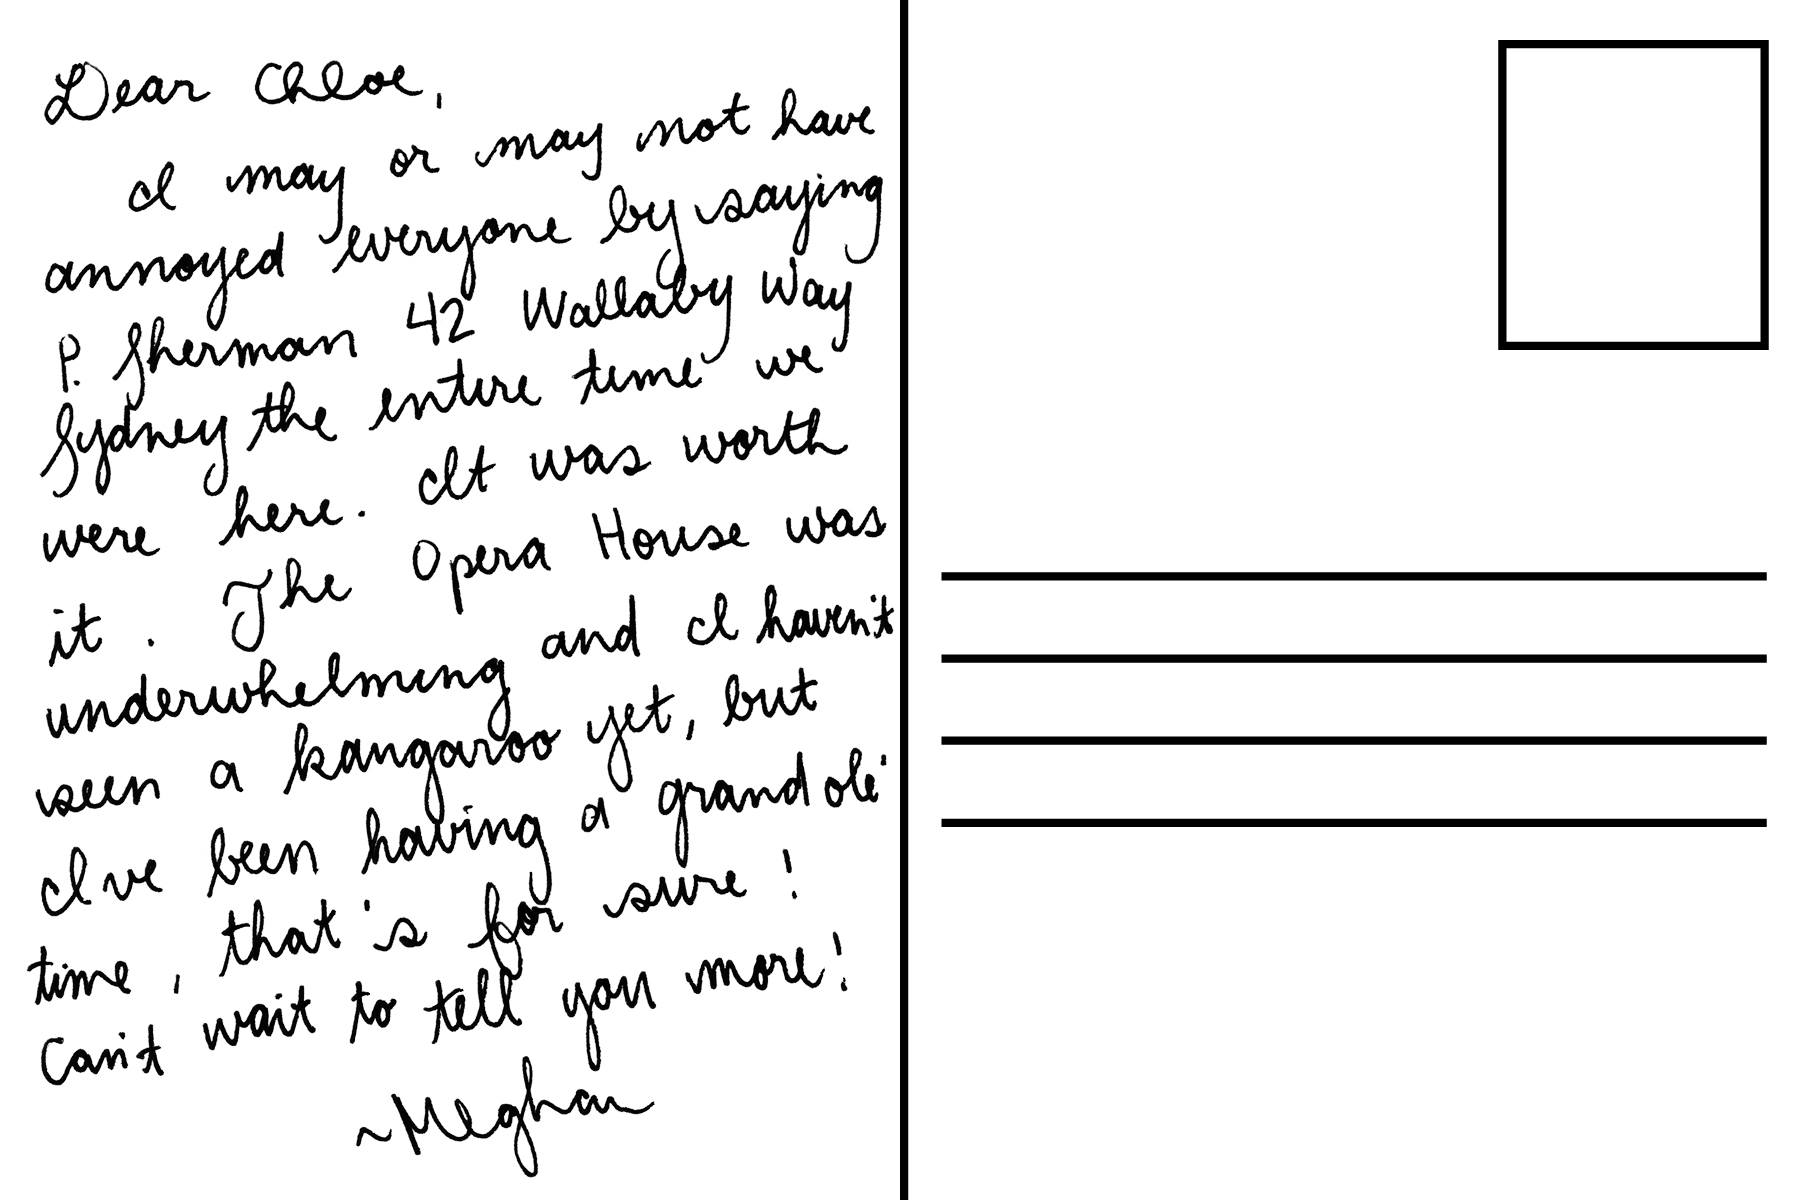 Dear Chloe,
I may or may not have
annoyed everyone by saying
P. Sherman 42 Wallaby Way
Sydney the entire time we
were here. It was worth
it. The Opera House was
underwhelming and I haven't
seen a kangaroo yet, but
I've been having a grand ole'
time, that's for sure!
Can't wait to tell you more!
~Meghan